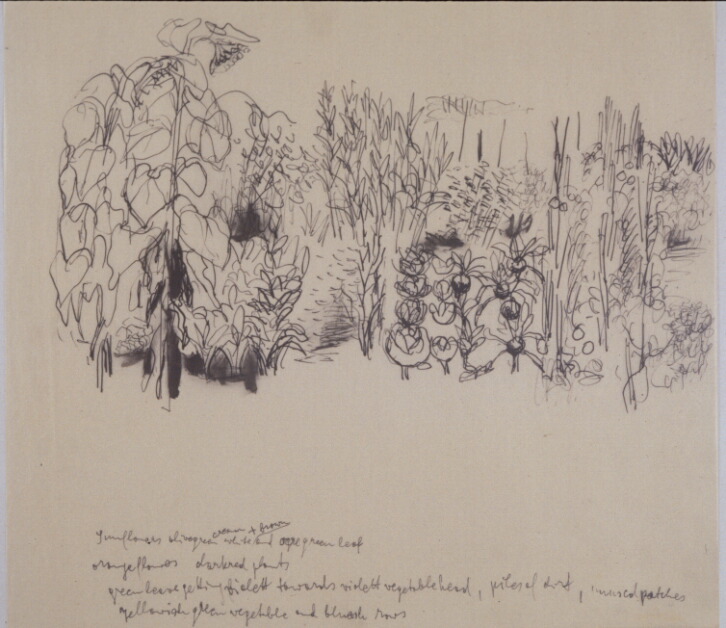 cream + brown
Sunflowers olivegreen white and green leaf
orangeflowers darkred plants
greenleave getting violett towards violett vegetablehead, piles of dirt, unused patches
yellowish green vegetable and blueish rows